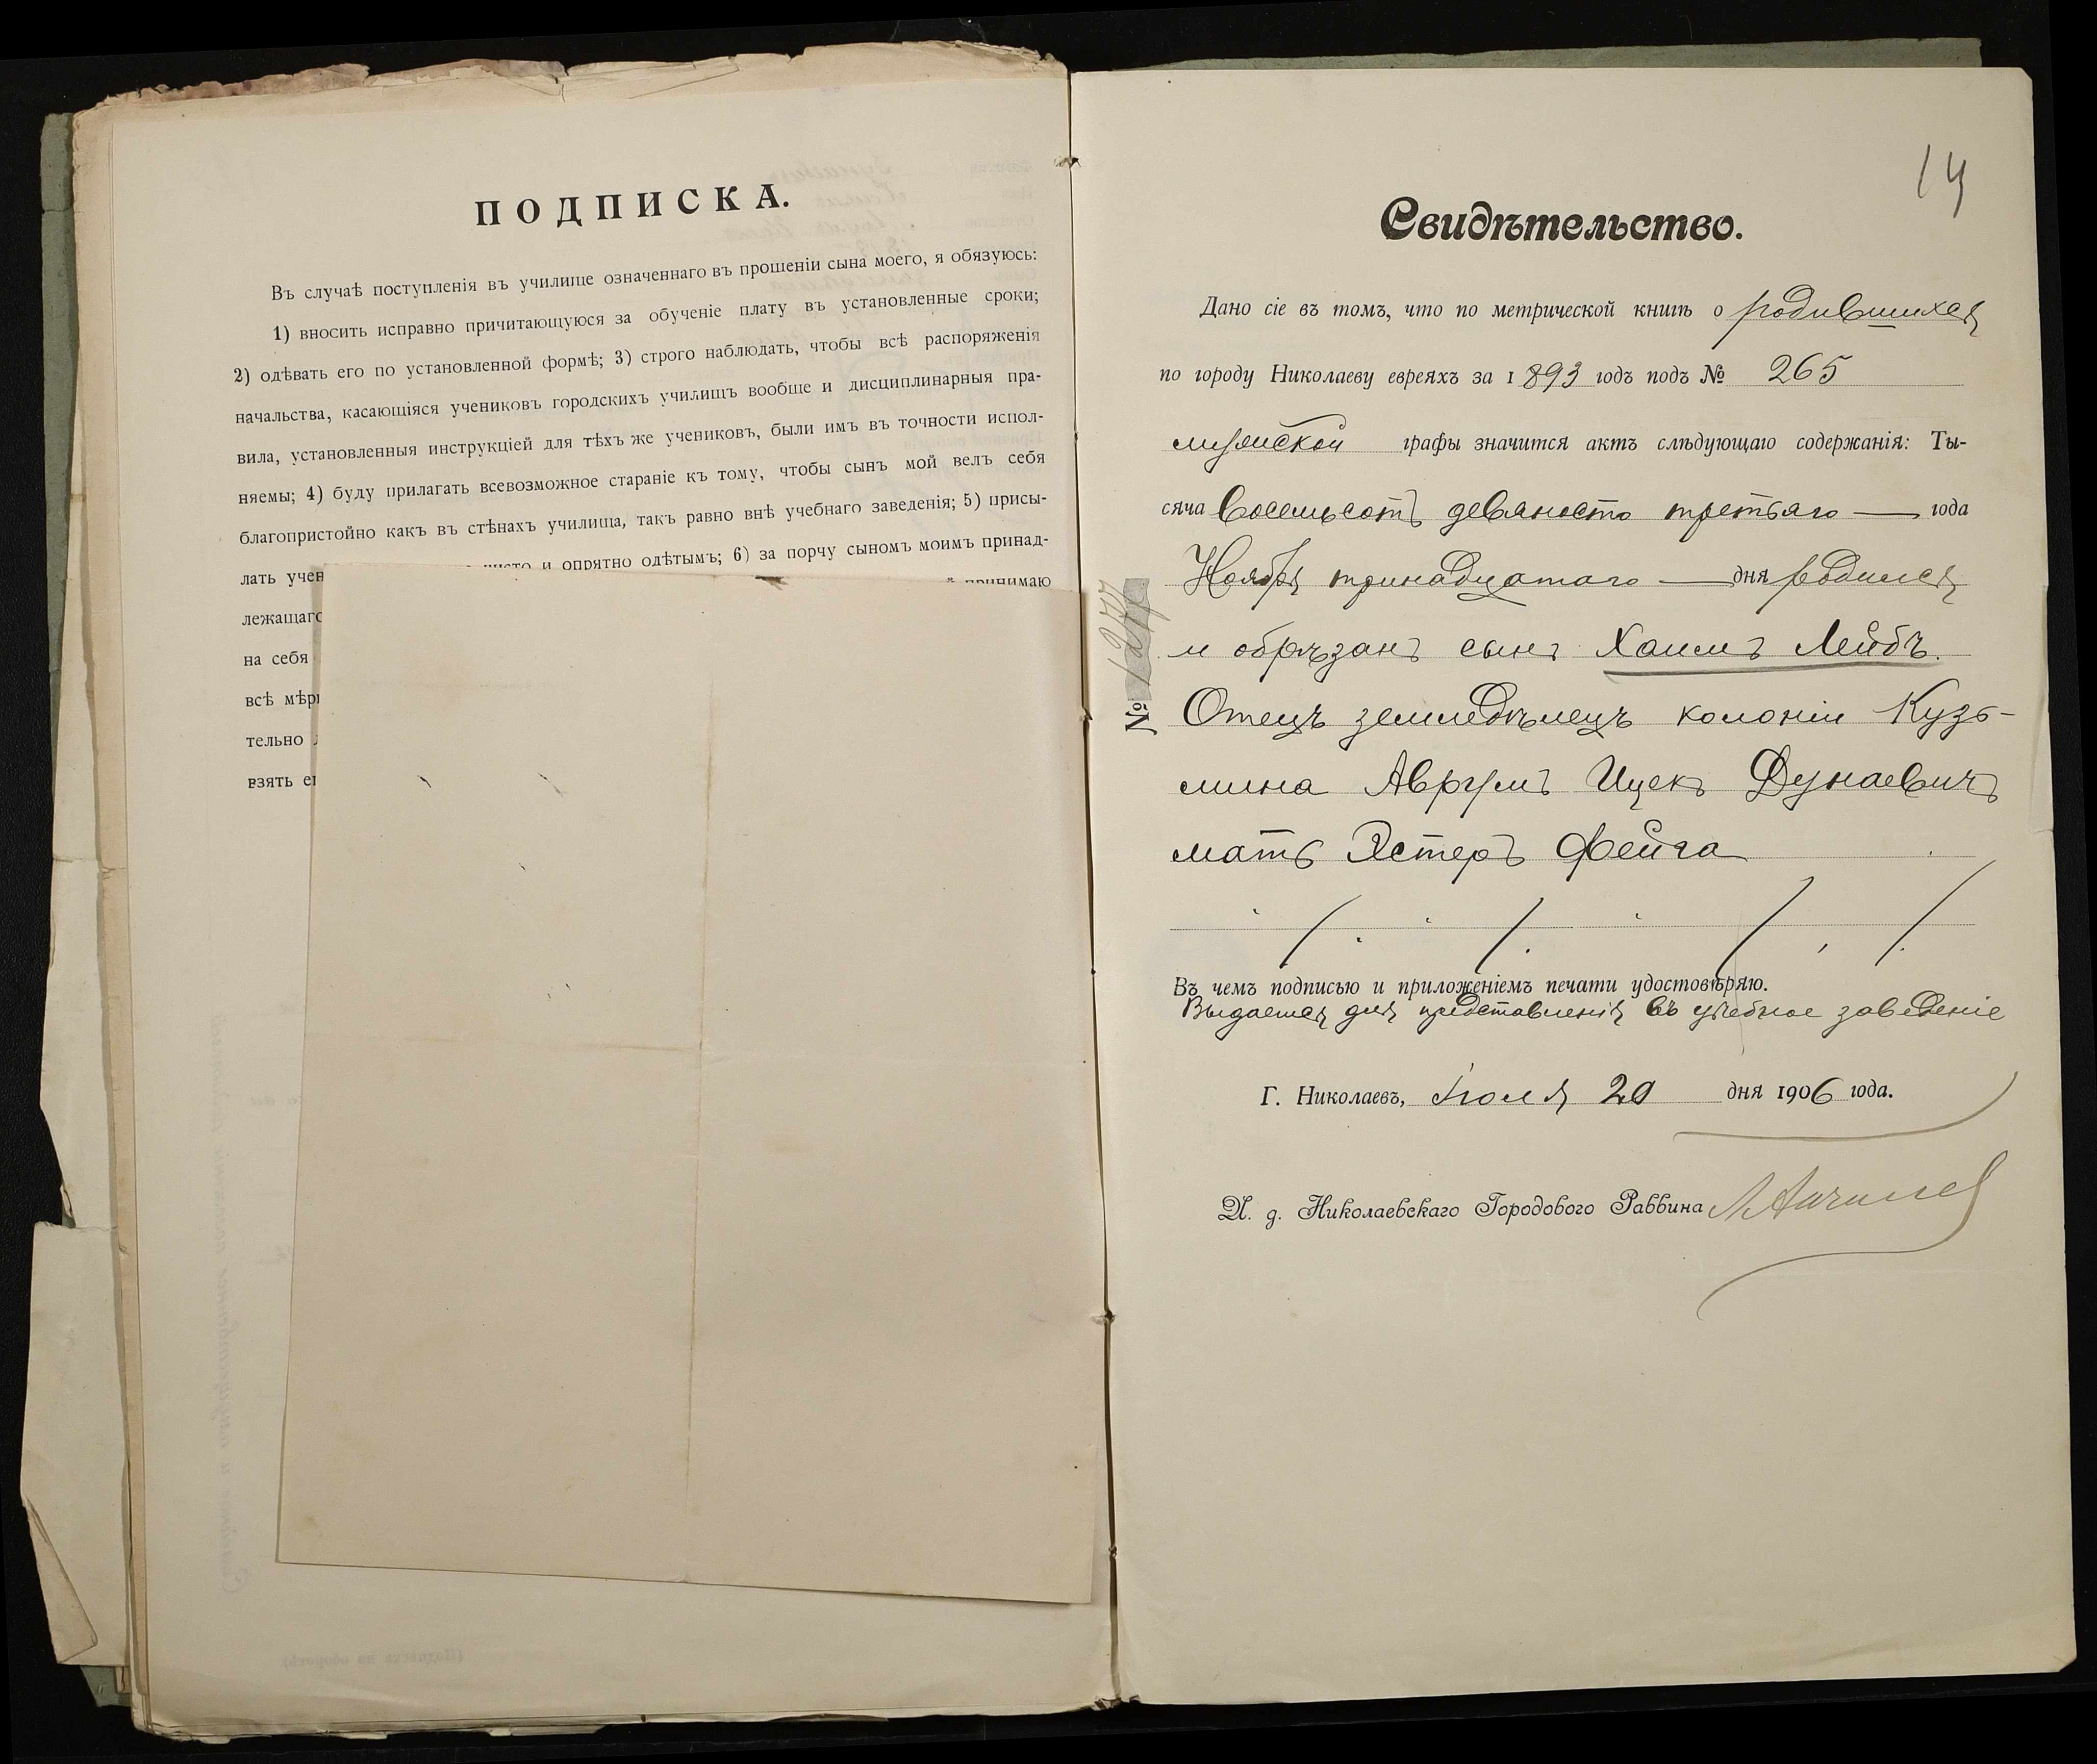 ПОДПИСКА.
Въ случаѣ поступленія въ училище означеннаго въ прошеніи сына моего, я обязуюсь:
1) вносить исправно причитающуюся за обученіе плату въ установленные сроки;
2) одѣвать его по установленной формѣ; 3) строго наблюдать, чтобы всѣ распоряженія
начальства, касающіяся учениковъ городскихъ училищъ вообще и дисциплинарныя пра-
вила, установленныя инструкціей для тѣхъ же учениковъ, были имъ въ точности испол-
няемы; 4) буду прилагать всевозможное стараніе къ тому, чтобы сынъ мой велъ себя
благопристойно какъ въ стѣнахъ училища, такъ равно внѣ учебнаго заведенія; 5) присы-
лать учен чисто и опрятно одѣтымъ; 6) за порчу сыномъ моимъ принад-
лежащаго принимаю
на себя
всѣ мѣры
тельно
взять ег
14
Свидѣтельство.
Дано сіе въ томъ, что по метрической книгѣ о родившихся
по городу Николаеву евреяхъ за 1893 годъ подъ № 265
мужской графы значится актъ слѣдующаго содержанія: Ты-
сяча восемьсотъ девяносто третьяго — года
Ноября тринадцатаго — дня родился
и обрѣзанъ сынъ Хаимъ Лейбъ.
Отецъ земледѣлецъ колоніи Кузь-
мина Аврумъ Ицекъ Дунаевичъ
мать Эстеръ Фейга
Въ чемъ подписью и приложеніемъ печати удостовѣряю.
Выдается для представленія въ учебное заведеніе
Г. Николаевъ, Іюля 20 дня 1906 года.
И. д. Николаевскаго Городового Раввина
№